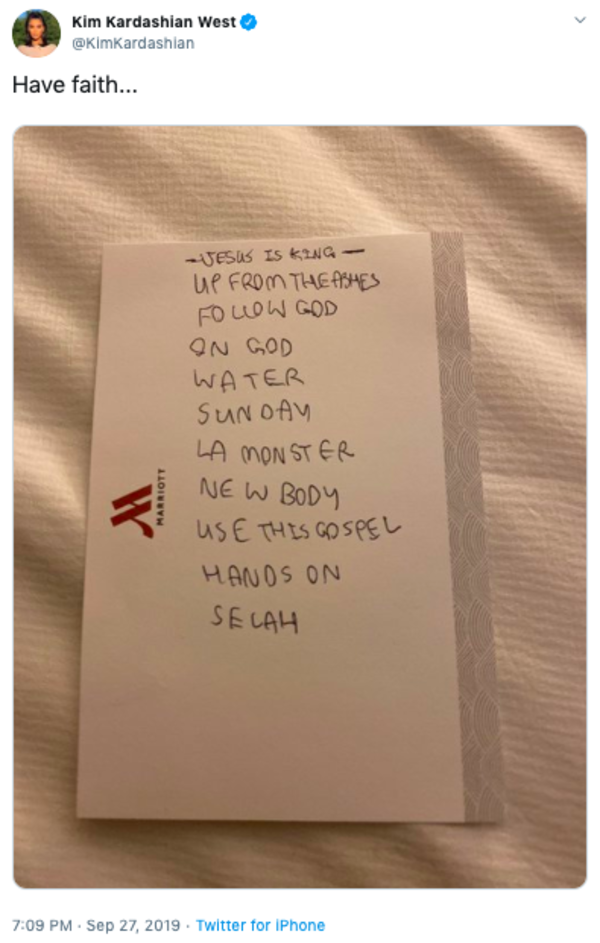 Kim Kardashian West
@KimKardashian
Have faith...
- JESUS IS KING -
UP FROM THE ASHES
FOLLOW GOD
ON GOD
WATER
SUNDAY
LA MONSTER
NEW BODY
USE THIS GOSPEL
HANDS ON
SELAH
MARRIOTT
7:09 PM · Sep 27, 2019 · Twitter for iPhone